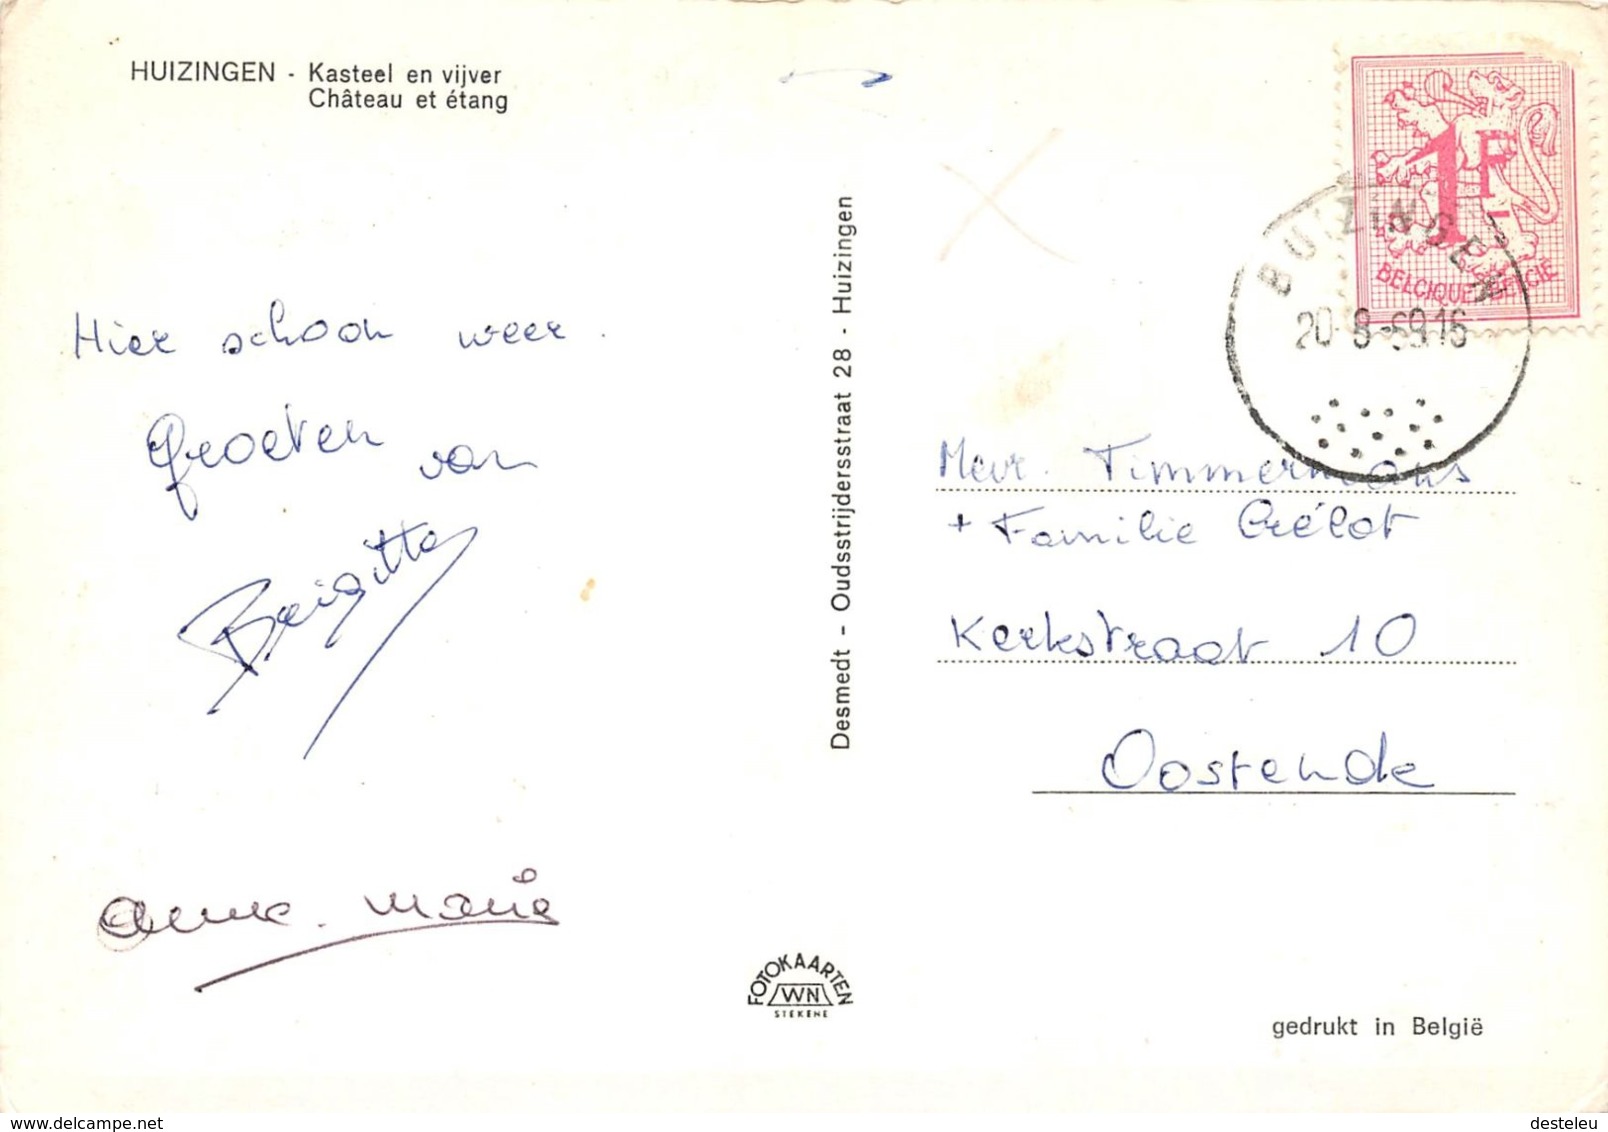 HUIZINGEN - Kasteel en vijver
Château et étang
Hier schoon weer.
Groeten van
Brigitte
Anne-Marie
Desmedt - Oudsstrijdersstraat 28 - Huizingen
FOTOKAARTEN
WN
STEKENE
1F
BELGIQUE-BELGIE
BUIZINGEN
20-8-69 16
Mevr. Timmermans
+ Familie Crélot
Kerkstraat 10
Oostende
gedrukt in België
www.delcampe.net
desteleu